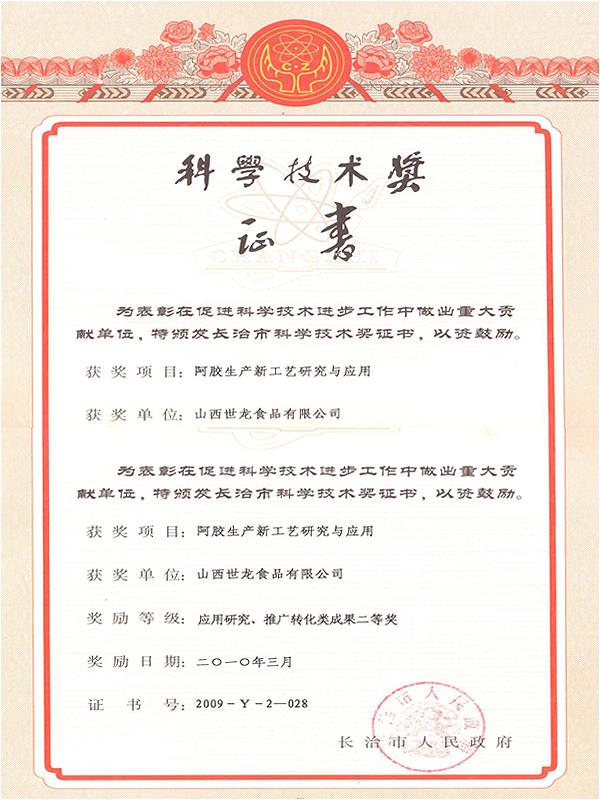 C·Z
科學技术奬
证書
CHANGZHI
为表彰在促进科学技术进步工作中做出重大贡
献单位，特颁发长治市科学技术奖证书，以资鼓励。
获奖项目：阿胶生产新工艺研究与应用
获奖单位：山西世龙食品有限公司
为表彰在促进科学技术进步工作中做出重大贡
献单位，特颁发长治市科学技术奖证书，以资鼓励。
获奖项目：阿胶生产新工艺研究与应用
获奖单位：山西世龙食品有限公司
奖励等级：应用研究、推广转化类成果二等奖
奖励日期：二〇一〇年三月
证书号：2009-Y-2—028
长治市人民政府
长治市人民政府